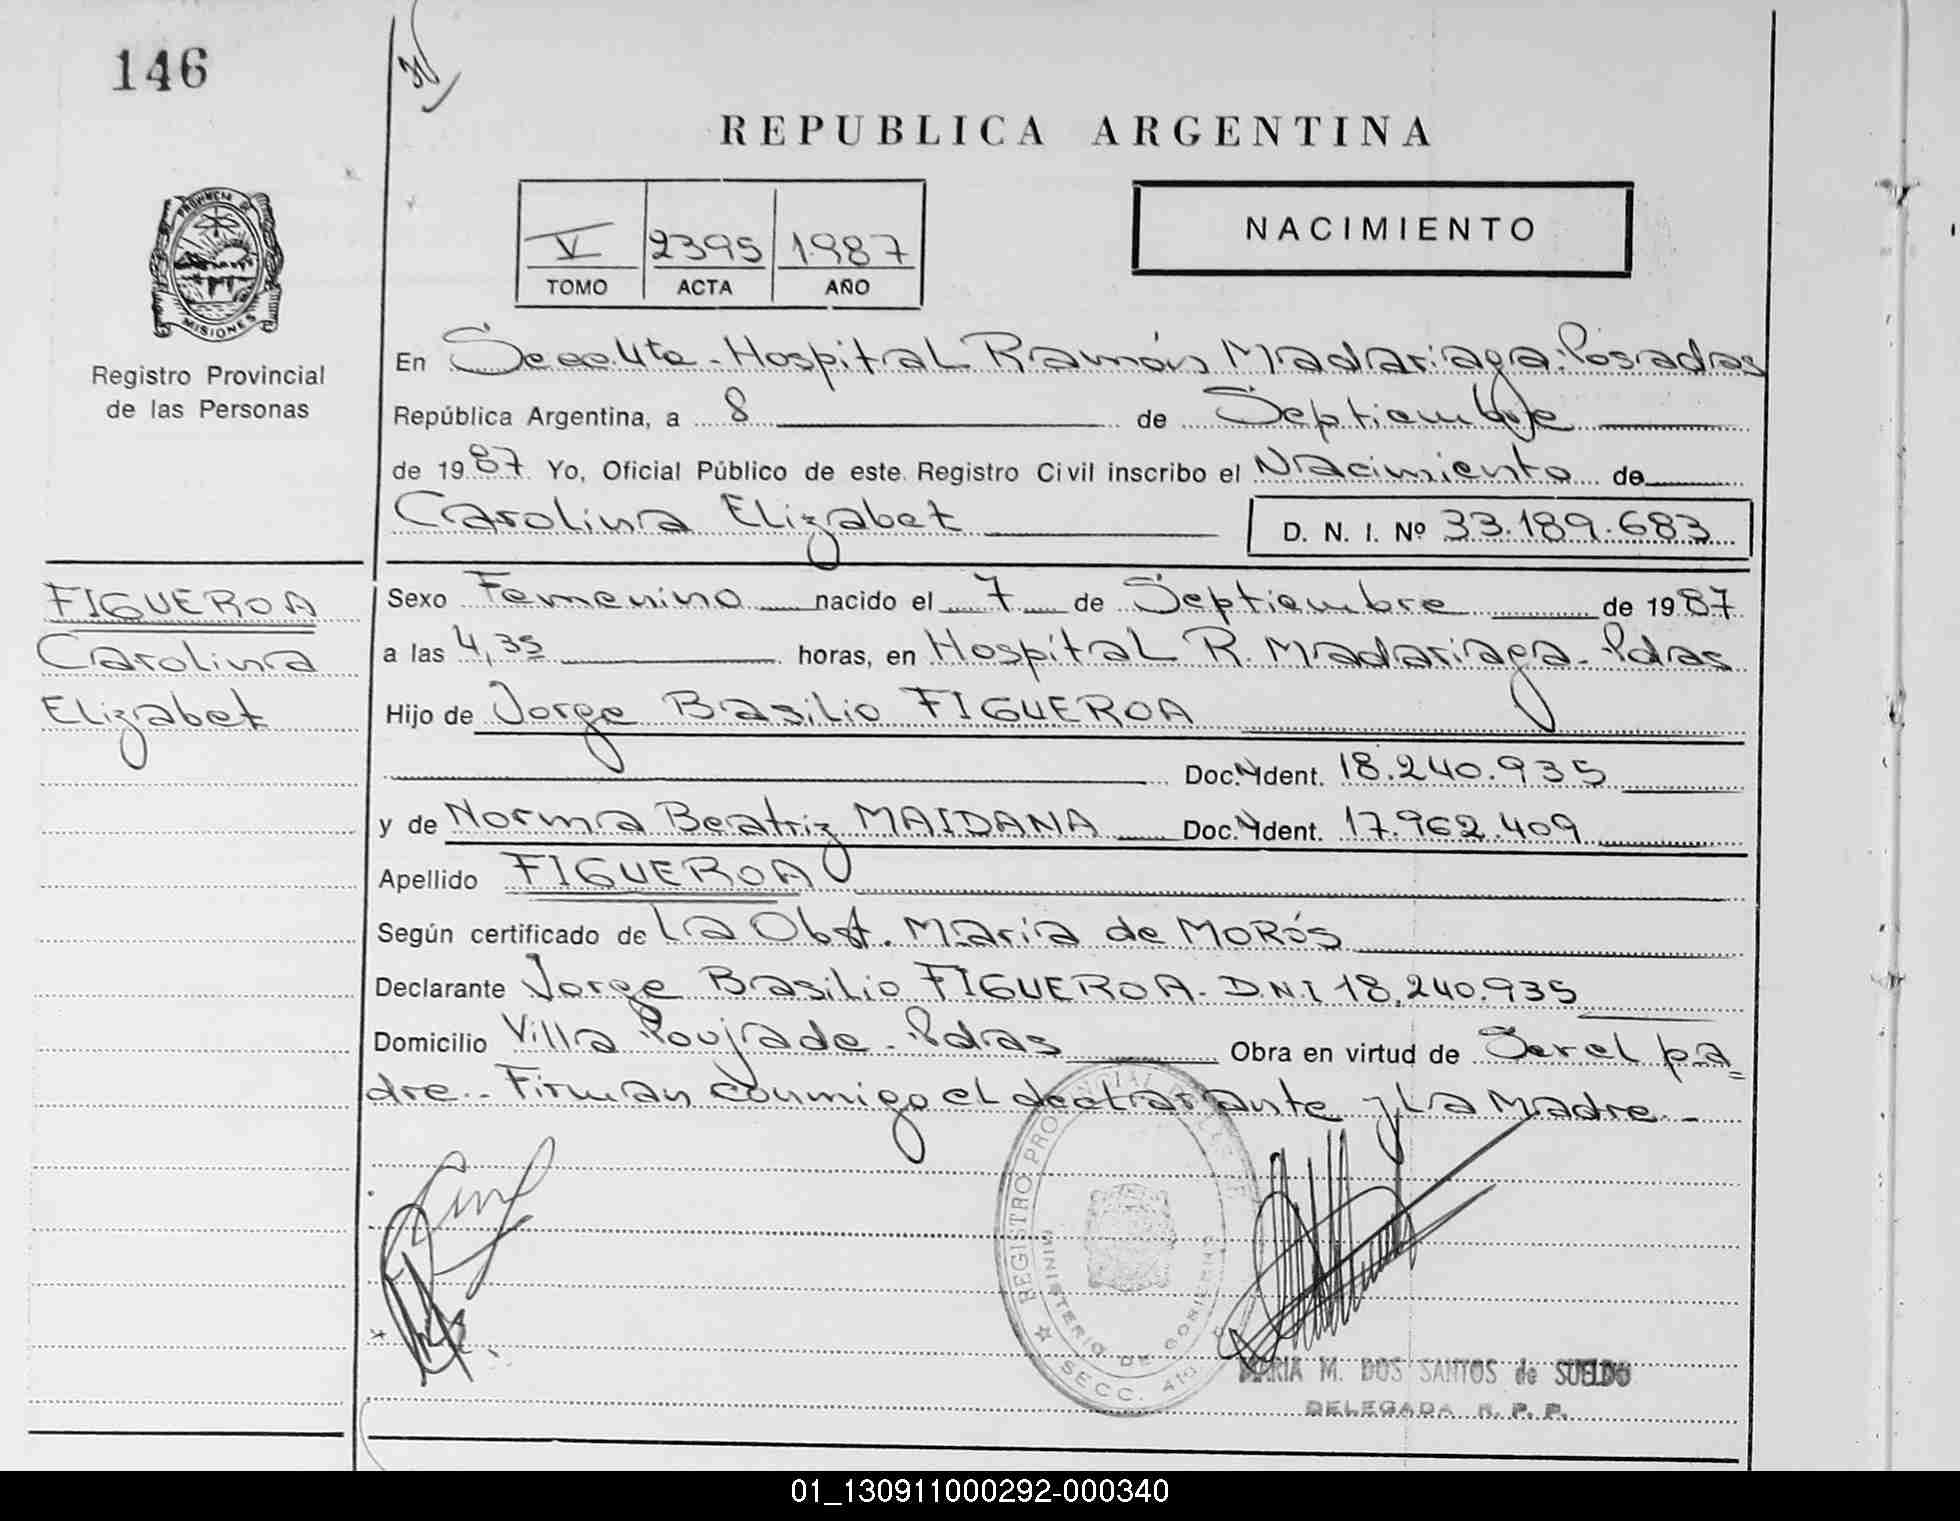 146
REPUBLICA ARGENTINA
PROVINCIA DE
MISIONES
Registro Provincial
de las Personas
V 2395 1987
TOMO ACTA AÑO
NACIMIENTO
En Secc. 4ta - Hospital Ramón Madariaga. Posadas
República Argentina, a 8 de Septiembre
de 1987 Yo, Oficial Público de este Registro Civil inscribo el Nacimiento de
Carolina Elizabet D. N. I. Nº 33.189.683
FIGUEROA
Carolina
Elizabet
Sexo Femenino nacido el 7 de Septiembre de 1987
a las 4,35 horas, en Hospital R. Madariaga - Pdas
Hijo de Jorge Basilio FIGUEROA
Doc. Ident. 18.240.935
y de Norma Beatriz MAIDANA Doc. Ident. 17.962.409
Apellido FIGUEROA
Según certificado de La Obst. María de MORÓS
Declarante Jorge Basilio FIGUEROA - D.N.I 18.240.935
Domicilio Villa Poujade - Pdas Obra en virtud de Ser el pa=
dre.- Firman conmigo el declarante y La Madre -
REGISTRO PROVINCIAL DE LAS
MINISTERIO DE GOBIERNO
SECC.
MARIA M. DOS SANTOS de SUELDO
DELEGADA R. P. P.
01_130911000292-000340